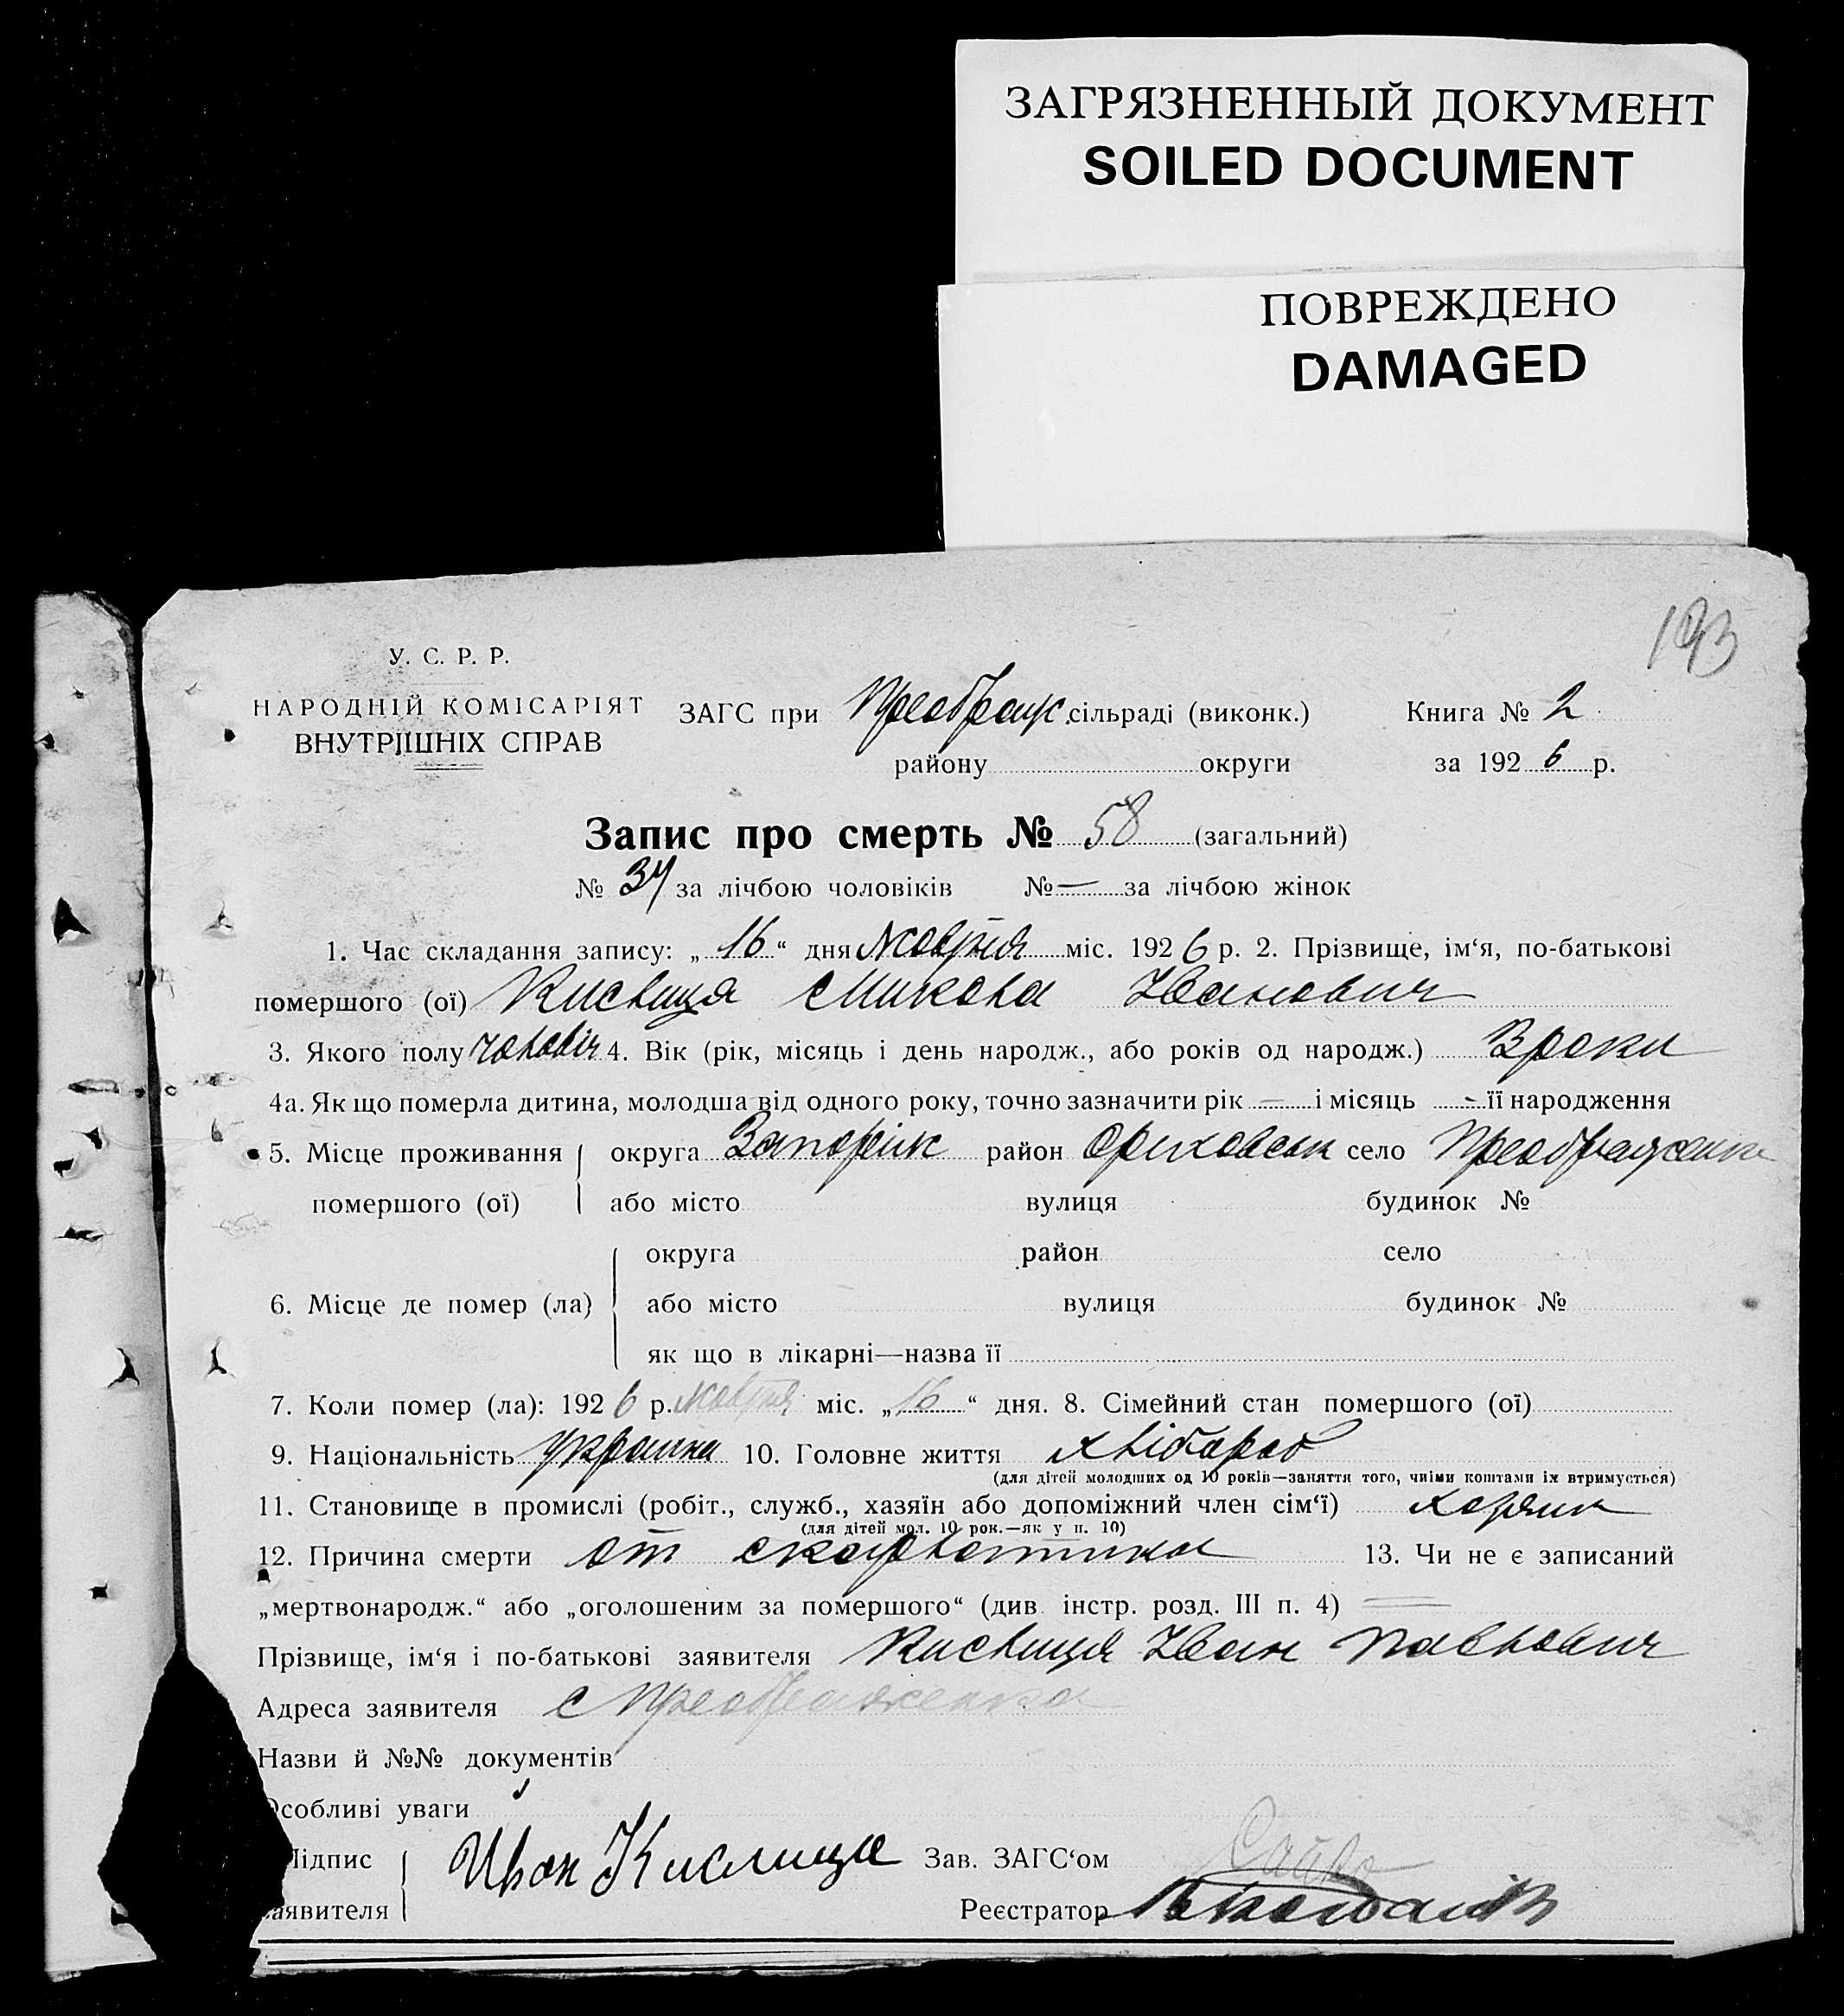 ЗАГРЯЗНЕННЫЙ ДОКУМЕНТ
SOILED DOCUMENT
ПОВРЕЖДЕНО
DAMAGED
193
У. С. Р. Р.
НАРОДНІЙ КОМІСАРІЯТ
ВНУТРІШНІХ СПРАВ
ЗАГС при Преображ. сільраді (виконк.) Книга № 2
району округи за 1926 р.
Запис про смерть № 58 (загальний)
№ 34 за лічбою чоловіків №— за лічбою жінок
1. Час складання запису: „16“ дня Жовтня міс. 1926 р. 2. Прізвище, ім‘я, по-батькові
помершого (ої) Кислиця Микола Іванович
3. Якого полу чоловіч 4. Вік (рік, місяць і день народж., або років од народж.) 3 роки
4а. Як що померла дитина, молодша від одного року, точно зазначити рік — і місяць - її народження
5. Місце проживання округа Запоріж район Оріховськ село Преображенка
помершого (ої) або місто вулиця будинок №
округа район село
6. Місце де помер (ла) або місто вулиця будинок №
як що в лікарні—назва її
7. Коли помер (ла): 1926 р. жовтня міс. „16“ дня. 8. Сімейний стан помершого (ої)
9. Національність Україна 10. Головне життя хлібороб
(для дітей молодших од 10 років—заняття того, чиїми коштами їх втримується)
11. Становище в промислі (робіт., служб., хазяїн або допоміжний член сім‘ї)
(для дітей мол. 10 рок.—як у п. 10)
12. Причина смерти от скарлатини 13. Чи не є записаний
„мертвонародж.“ або „оголошеним за помершого“ (див. інстр. розд. III п. 4) =
Прізвище, ім‘я і по-батькові заявителя Кислиця Іван Павлович
Адреса заявителя с Преображенка
Назви й №№ документів
Особливі уваги
Підпис Иван Кислица Зав. ЗАГС‘ом
заявителя Реєстратор